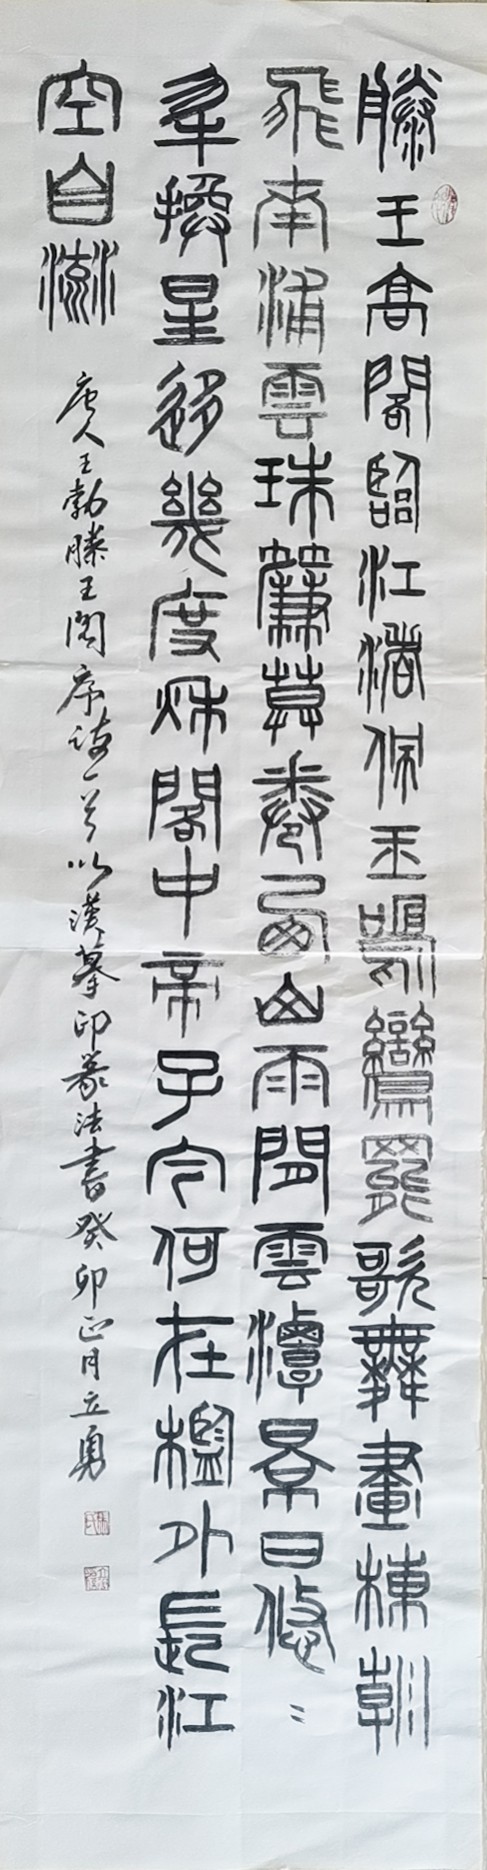 滕王高閣臨江渚佩玉鳴鸞罷歌舞畫棟朝
飛南浦雲珠簾暮卷西山雨閒雲潭景日悠〻
年換星移幾度秋閣中帝子今何在檻外長江
空自流
唐人王勃滕王閣序詩一首以漢摹印篆法書癸卯正月立勇